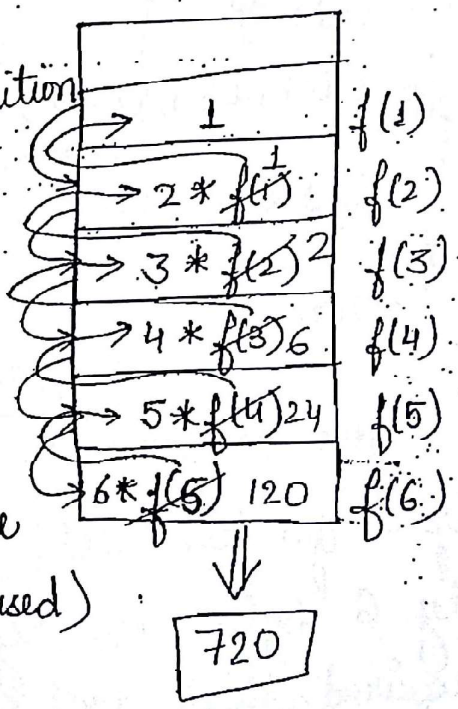 ition
1 f(1)
2 * f(1) 1 f(2)
3 * f(2) 2 f(3)
4 * f(3) 6 f(4)
5 * f(4) 24 f(5)
6 * f(5) 120 f(6)
e
used)
720